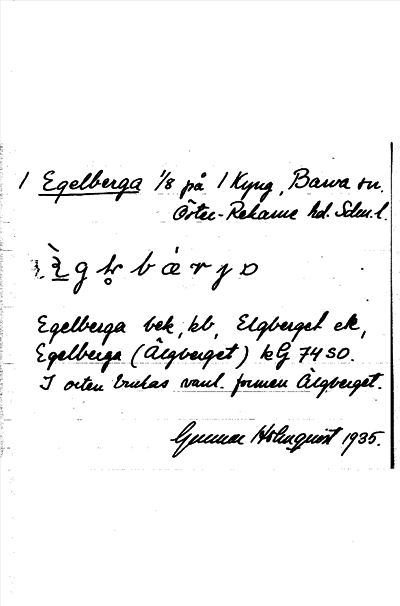 1 Egelberga 1/8 på 1 Kyng, Barva sn.
Öster-Rekarne hd. Sdm.l.
g b á r y
Egelberga bek, kb, Elgberget ek,
Egelberga (Älgberget) kG 74 SO.
I orten brukas vanl. formen Älgberget.
Gunnar Holmquist 1935.